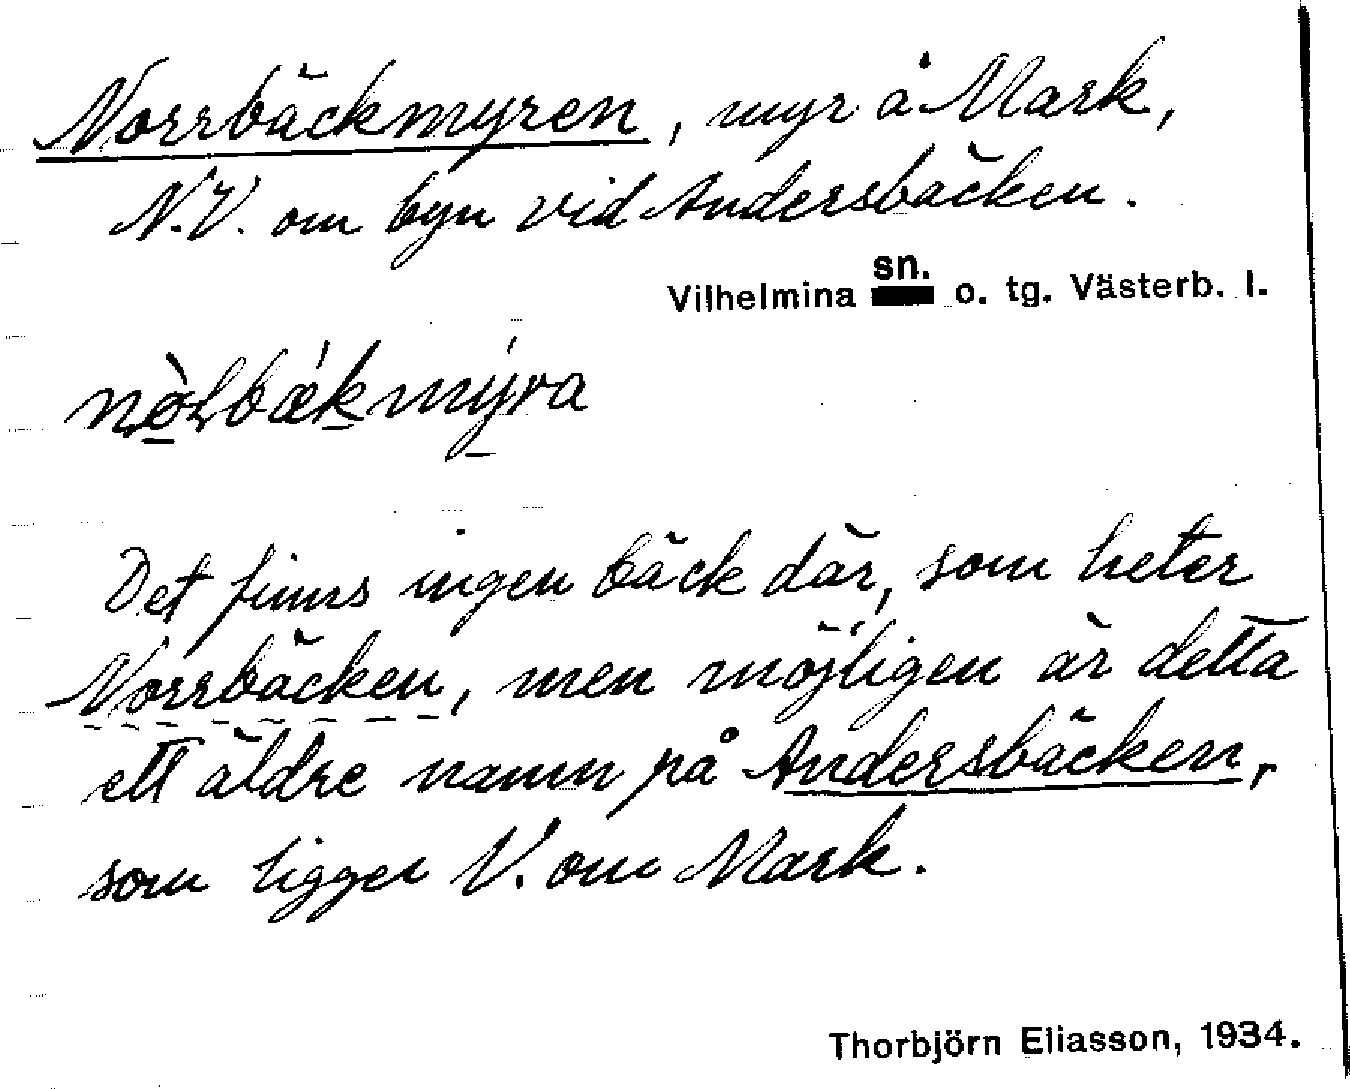 Norrbäckmyren, myr å Mark,
N.V. om byn vid Andersbäcken.
Vilhelmina sn. o. tg. Västerb. l.
Det finns ingen bäck där, som heter
Norrbäcken, men möjligen är detta
ett äldre namn på Andersbäcken,
som ligger V. om Mark.
Thorbjörn Eliasson, 1934.